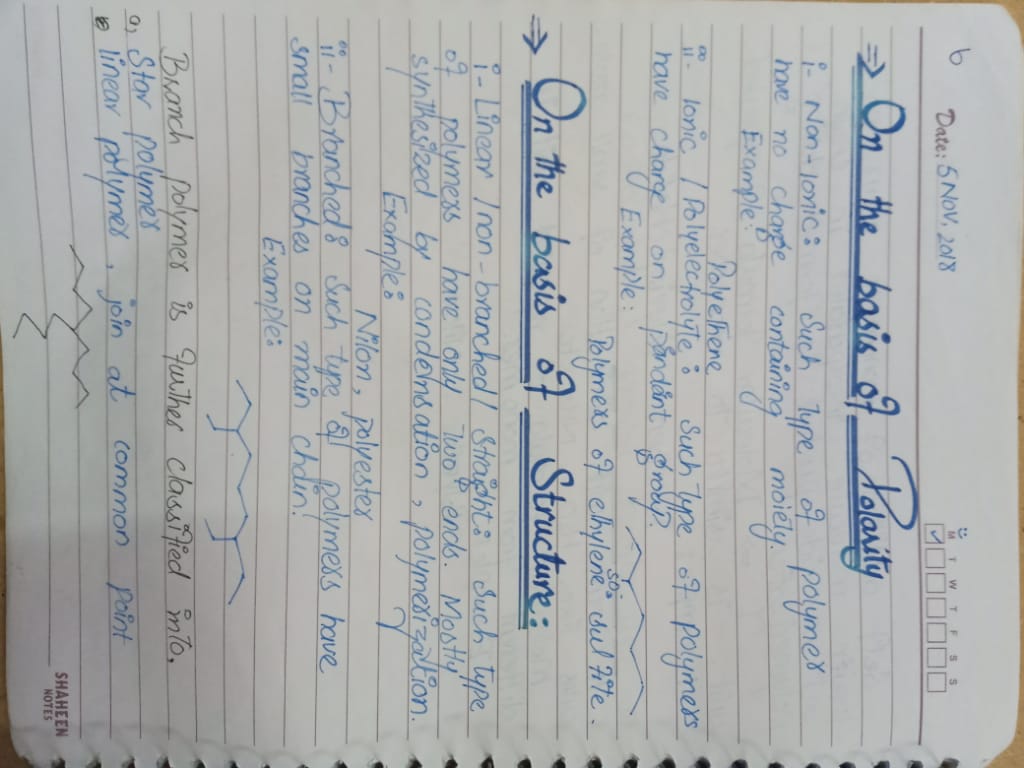 6
Date: 5 Nov, 2018
M T W T F S S
⇒ On the basis of Polarity
i- Non-Ionic: Such type of polymer
have no charge containing moiety.
Example:
Polyethene
ii- Ionic / Polyelectrolite: Such type of polymers
have charge on pandant group.
Example:
Polymers of ethylene sulfite.
⇒ On the basis of Structure:
i- Linear / non-branched / Straight: Such type
of polymers have only two ends. Mostly
synthesized by condensation, polymerization.
Example:
Nilon, polyester
ii- Branched: Such type of polymers have
small branches on main chain.
Example:
Branch polymer is further classified into,
a, Star polymer
linear polymers, join at common point
SHAHEEN
NOTES